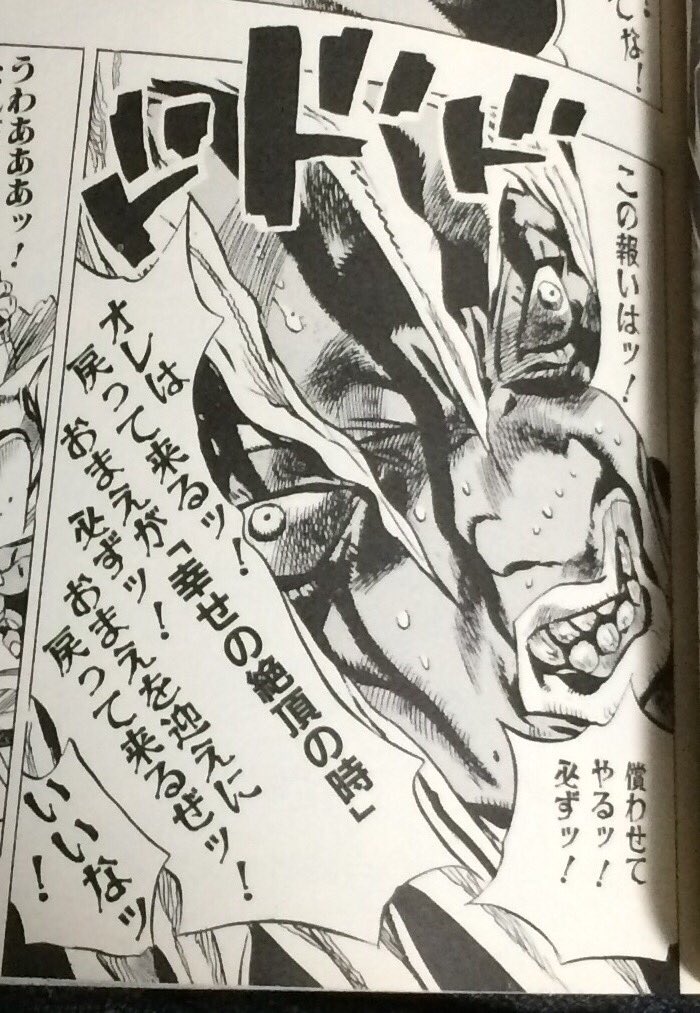 この報いはッ！
償わせて
やるッ！
必ずッ！
ドドド
オレは
戻って来るッ！
おまえが「幸せの絶頂の時」
必ずッ！おまえを迎えに
戻って来るぜッ！
いいなッ！
うわあああッ！